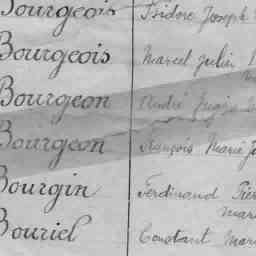 Bourgeois Isidore Joseph
Bourgeois Marcel Julin
Bourgeon André
Bourgeon François Marie
Bourgin Ferdinand
Bouriel Constant